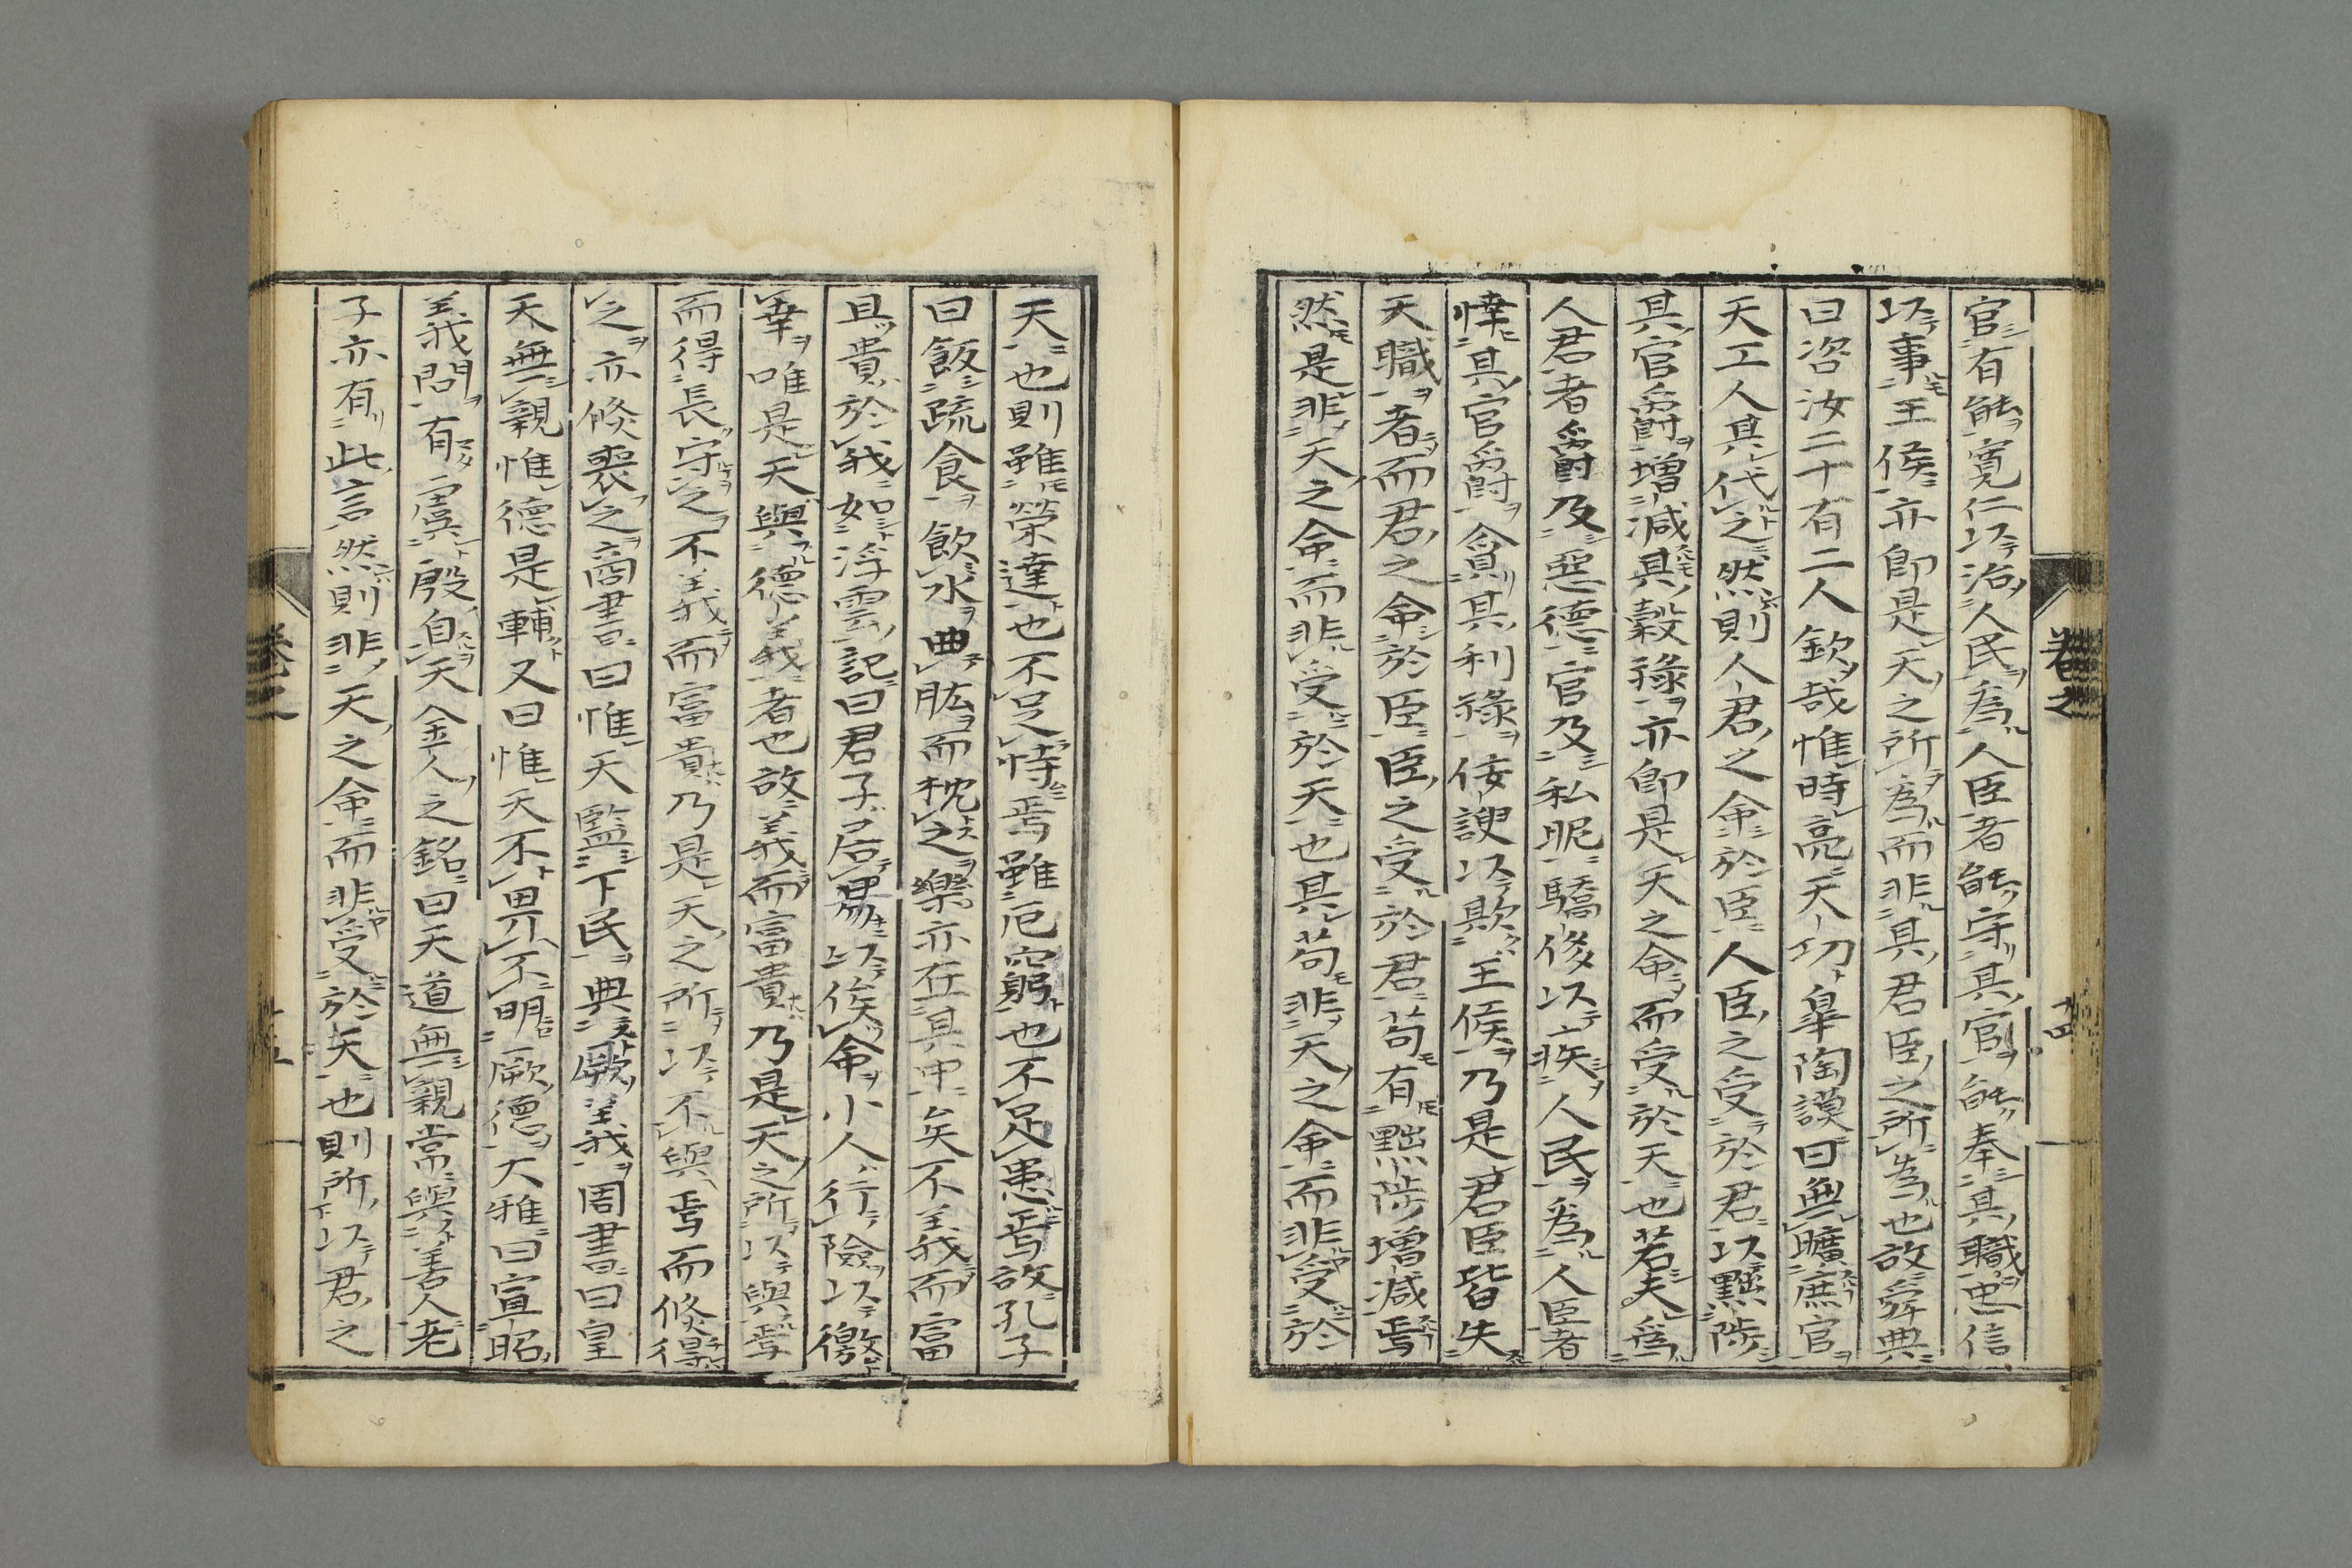 官有能寛仁以治人民為人臣者能守其官能奉其職忠信
以事王侯亦即是天之所為而非其君臣之所為也故舜典
曰咨汝二十有二人欽哉惟時亮天功皐陶謨曰無曠庶官
天工人其代之然則人君之命於臣人臣之受於君以黜陟
其官爵増減其穀祿亦即是天之命而受於天也若夫為
人君者爵及惡德官及私昵驕侈以疾人民為人臣者
悻其官爵貪其利祿佞諛以欺王侯乃是君臣皆失
天職者而君之命於臣臣之受於君苟有黜陟増減焉
然是非天之命而非受於天也其苟非天之命而非受於
卷之
十四
天也則雖榮達也不足恃焉雖厄窮也不足患焉故孔子
曰飯疏食飲水曲肱而枕之樂亦在其中矣不義而富
且貴於我如浮雲記曰君子居易以俟命小人行險以徼
幸唯是天與德義者也故義而富貴乃是天之所以與焉
而得長守之不義而富貴乃是天之所以不與焉而倏得
之亦倏喪之商書曰惟天監下民典厥義周書曰皇
天無親惟德是輔又曰惟天不畀不明厥德大雅曰宣昭
義問有虞殷自天金人之銘曰天道無親常與善人老
子亦有此言然則非天之命而非受於天也則所以君之
卷之
十五